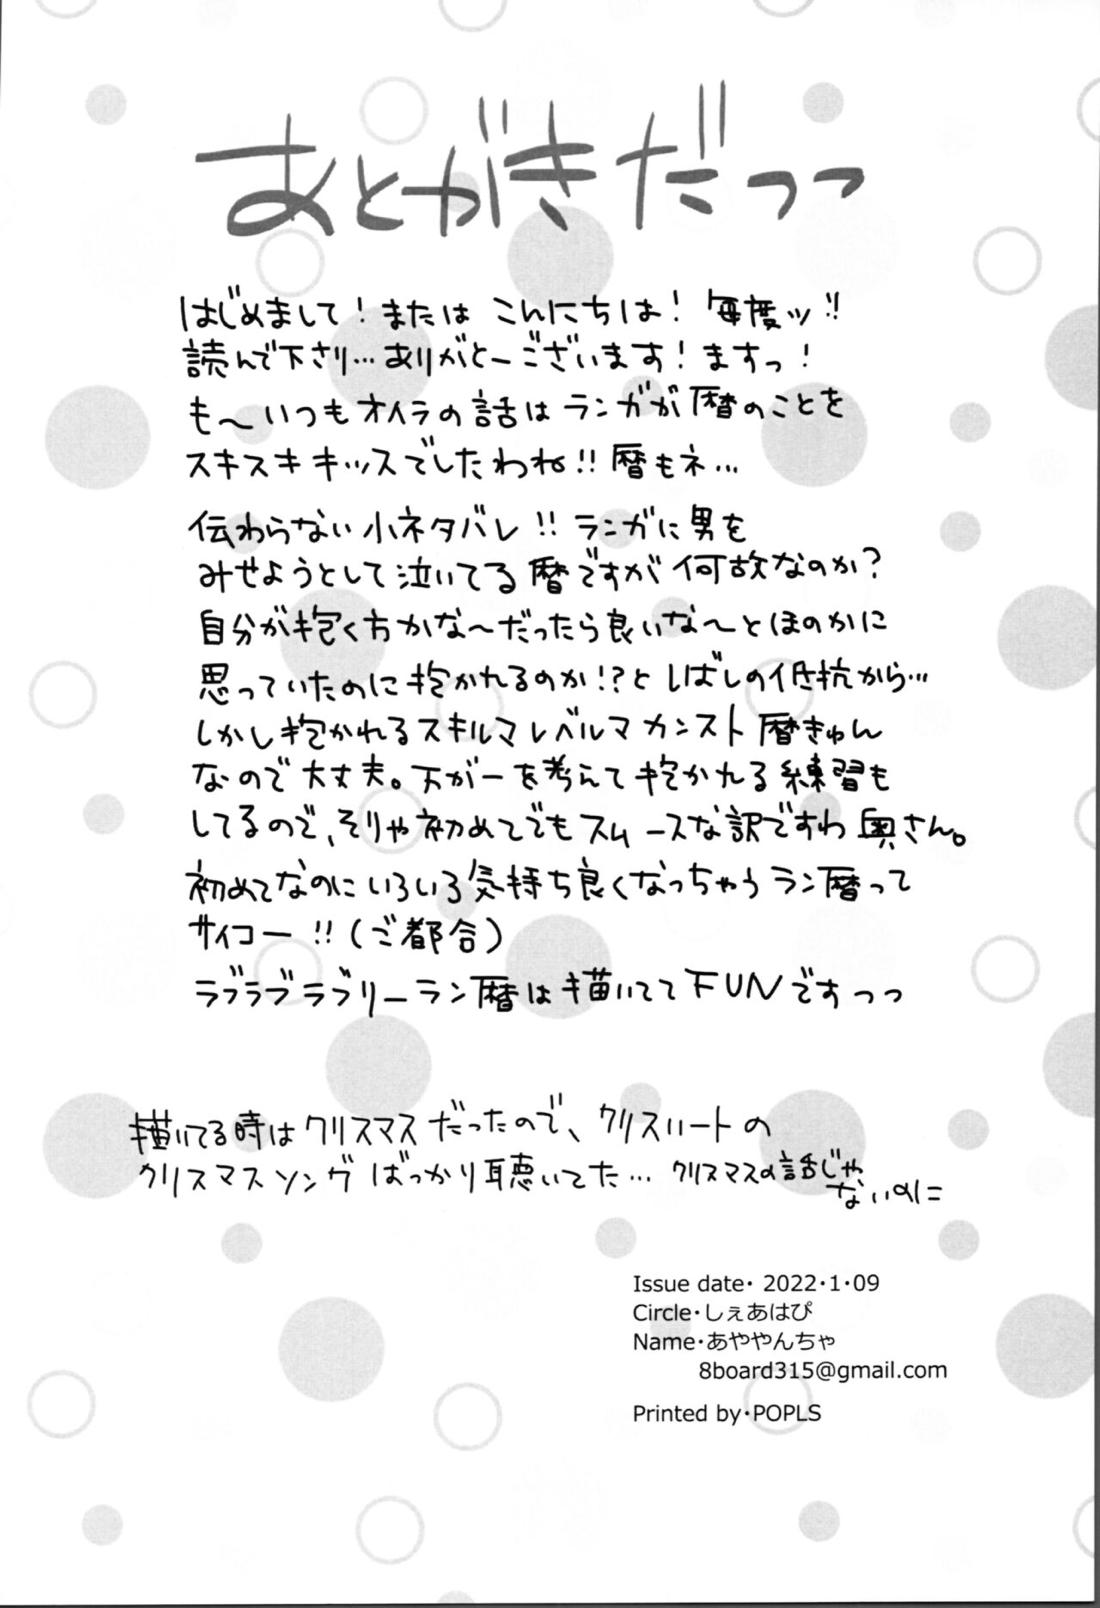 あとがきだっっ
はじめまして!または こんにちは! 毎度ッ!!
読んで下さり…ありがとーございます!ますっ!
も〜いつもオイラの話は ランガが暦のことを
スキスキキッスでしたわね!! 暦もネ…
伝わらない小ネタバレ!! ランガに男を
みせようとして泣いてる 暦ですが 何故なのか?
自分が抱く方かな〜だったら良いな〜とほのかに
思っていたのに抱かれるのか!?と しばしの抵抗から…
しかし抱かれるスキルマレベルマ カンスト 暦きゅん
なので大丈夫。万が一を考えて抱かれる練習も
してるので、そりゃ初めてでもスムースな訳ですわ 奥さん。
初めてなのにいろいろ気持ち良くなっちゃうラン暦って
サイコー!!(ご都合)
ラブラブラブリーラン暦は描いててFUNですっっ
描いてる時はクリスマスだったので、クリスハートの
クリスマスソングばっかり聴いてた… クリスマスの話じゃ
ないのに
Issue date・ 2022・1・09
Circle・しぇあはぴ
Name・あややんちゃ
8board315@gmail.com
Printed by・POPLS